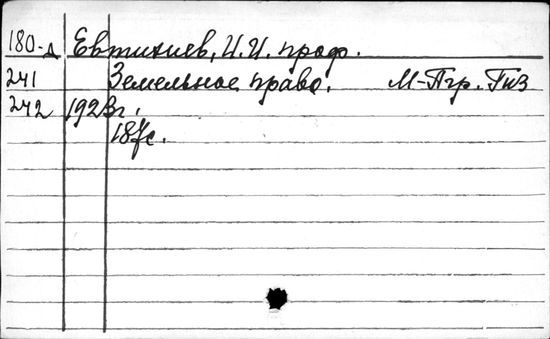 180-д Евтихиев, И.И. проф.
241 Земельное право. М-Пгр. Гиз
242 1923г.
187с.